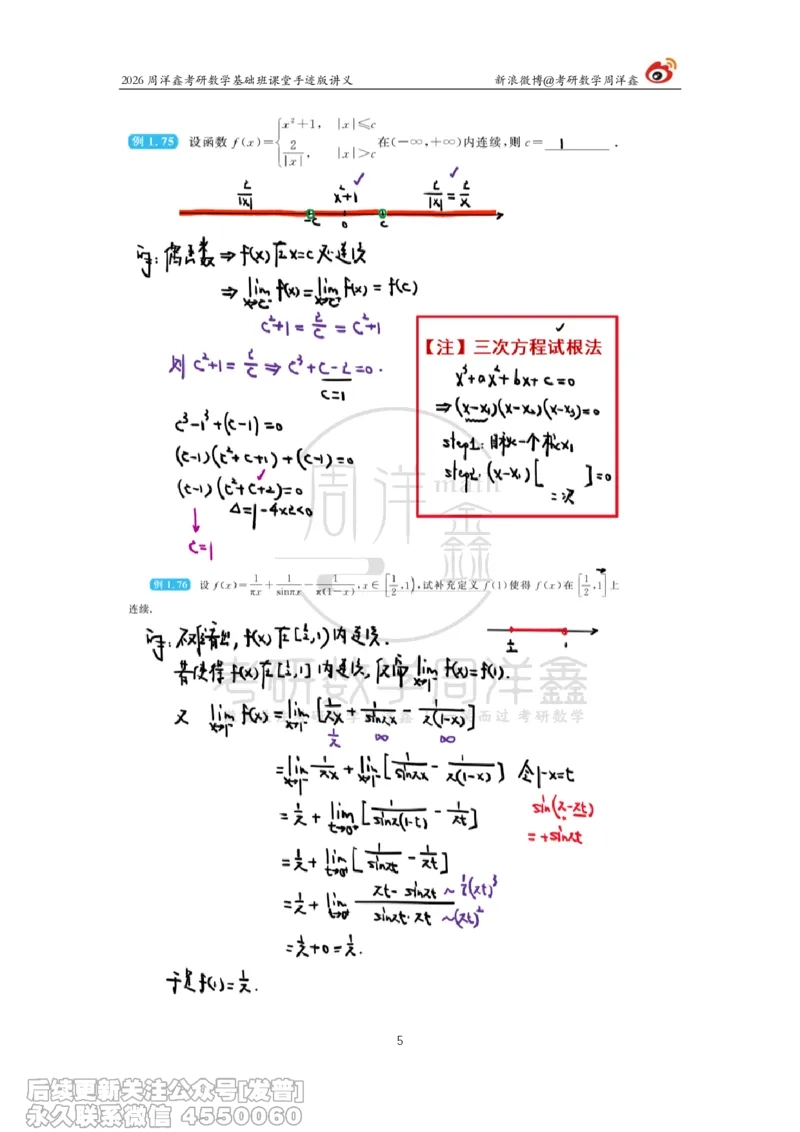 2026 周洋鑫考研数学基础班课堂手迹版讲义 新浪微博@考研数学周洋鑫
例 1.75 设函数 f(x)={x²+1, |x|≤c; 2/|x|, |x|>c 在(−∞,+∞)内连续,则 c= 1 .
2/|x| x²+1 ✓ 2/|x|=2/x ✓
-c 0 c
偶函数⇒f(x)在x=c处连续
⇒ lim x→c⁻ f(x)=lim x→c⁺ f(x)=f(c)
c²+1=2/c=c²+1
则 c²+1=2/c⇒c³+c-2=0.
c=1
c³-1³+(c-1)=0
(c-1)(c²+c+1)+(c-1)=0
(c-1)(c²+c+2)=0
Δ=1-4×2<0
↓
c=1
【注】三次方程试根法
x³+ax²+bx+c=0
⇒(x-x₁)(x-x₂)(x-x₃)=0
step1:目标一个根x₁
step2:(x-x₁)[ ]=0
二次
周洋
math
鑫
例 1.76 设 f(x)=1/πx+1/sinπx−1/π(1−x),x∈[1/2,1),试补充定义 f(1)使得 f(x)在[1/2,1]上
连续.
f(x)在[1/2,1)内连续.
1/2 1
若使得f(x)在[1/2,1]内连续,只需 lim x→1⁻ f(x)=f(1).
考研数学周洋鑫
又 lim x→1⁻ f(x)=lim x→1⁻[1/πx+1/sinπx-1/π(1-x)]
1/π ∞ ∞
=lim x→1⁻ 1/πx+lim x→1⁻[1/sinπx-1/π(1-x)] 令1-x=t
=1/π+lim t→0⁺[1/sinπ(1-t)-1/πt]
sin(π-πt)
=+sinπt
=1/π+lim t→0⁺[1/sinπt-1/πt]
=1/π+lim t→0⁺ (πt-sinπt)/(sinπt·πt) ~1/6(πt)³ ~(πt)²
=1/π+0=1/π.
于是f(1)=1/π.
5
后续更新关注公众号[发普]
永久联系微信 4550060